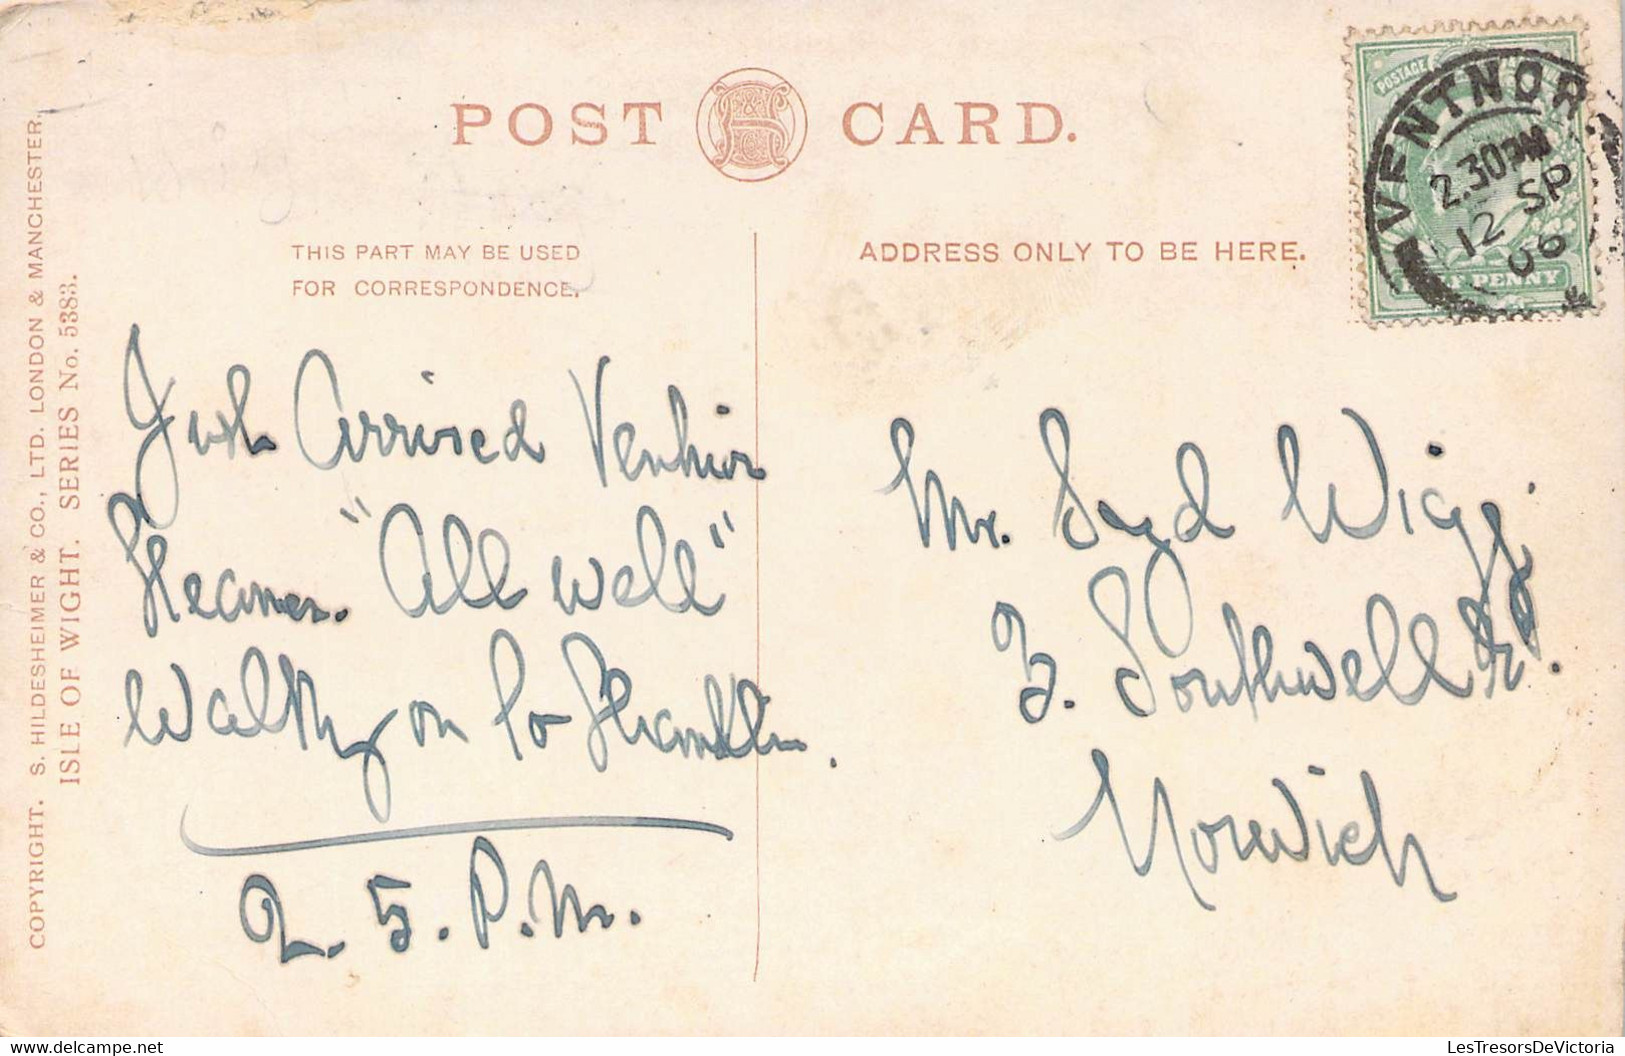 POST CARD.
THIS PART MAY BE USED
FOR CORRESPONDENCE.
ADDRESS ONLY TO BE HERE.
COPYRIGHT. S. HILDESHEIMER & CO., LTD. LONDON & MANCHESTER.
ISLE OF WIGHT. SERIES No. 5383.
POSTAGE
VENTNOR
2.30PM
12 SP
06
HALF PENNY
Just Arrived Ventnor
Steamer. "All well"
Walking on to Shanklin.
2. 5. P.M.
Mr. Syd Wigg
3. Southwell St.
Norwich
LesTresorsDeVictoria
delcampe.net